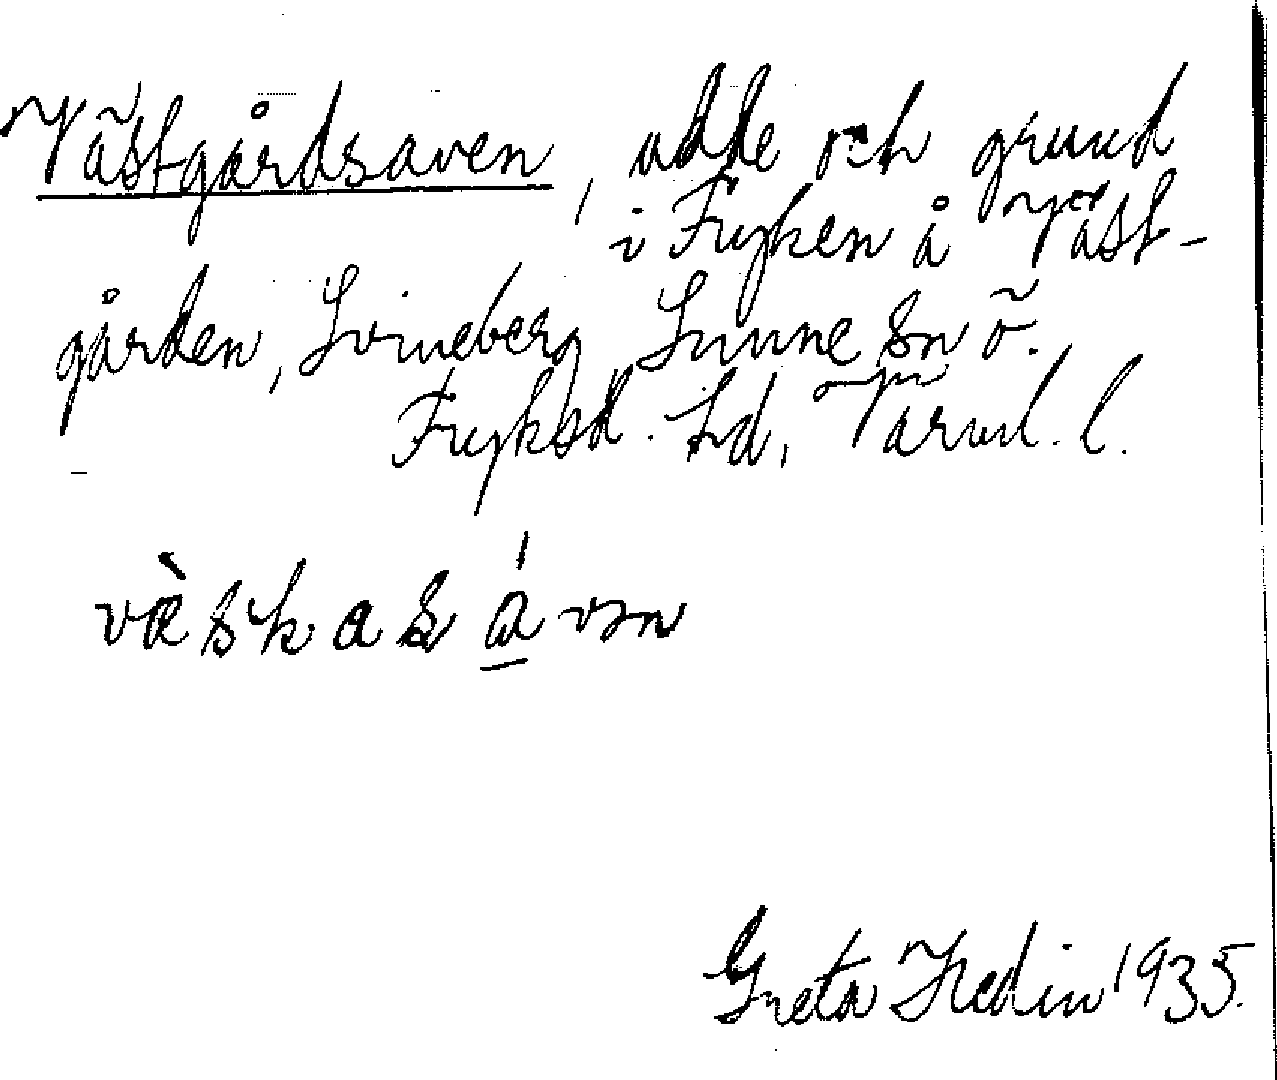 Västgårdsaven, udde och grund
i Fryken å Väst-
gården, Svineberg Sunne sn ö.
Fryksd. hd, Värml. l.
væ̀skasávn
Greta Hedin 1935.